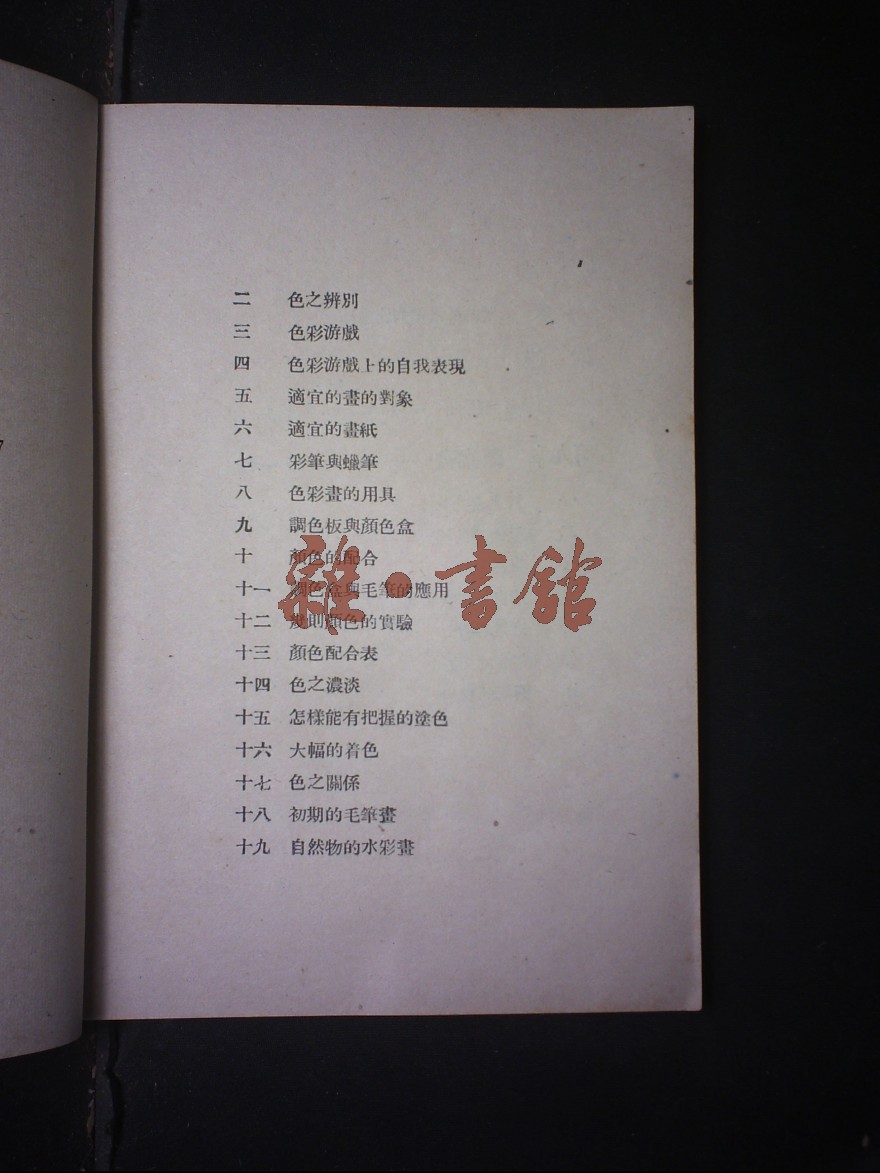 二 色之辨別
三 色彩游戲
四 色彩游戲上的自我表現
五 適宜的畫的對象
六 適宜的畫紙
七 彩筆與蠟筆
八 色彩畫的用具
九 調色板與顏色盒
十 顏色的配合
十一 調色盒與毛筆的應用
十二 規則顏色的實驗
十三 顏色配合表
十四 色之濃淡
十五 怎樣能有把握的塗色
十六 大幅的着色
十七 色之關係
十八 初期的毛筆畫
十九 自然物的水彩畫
雜·書館
7